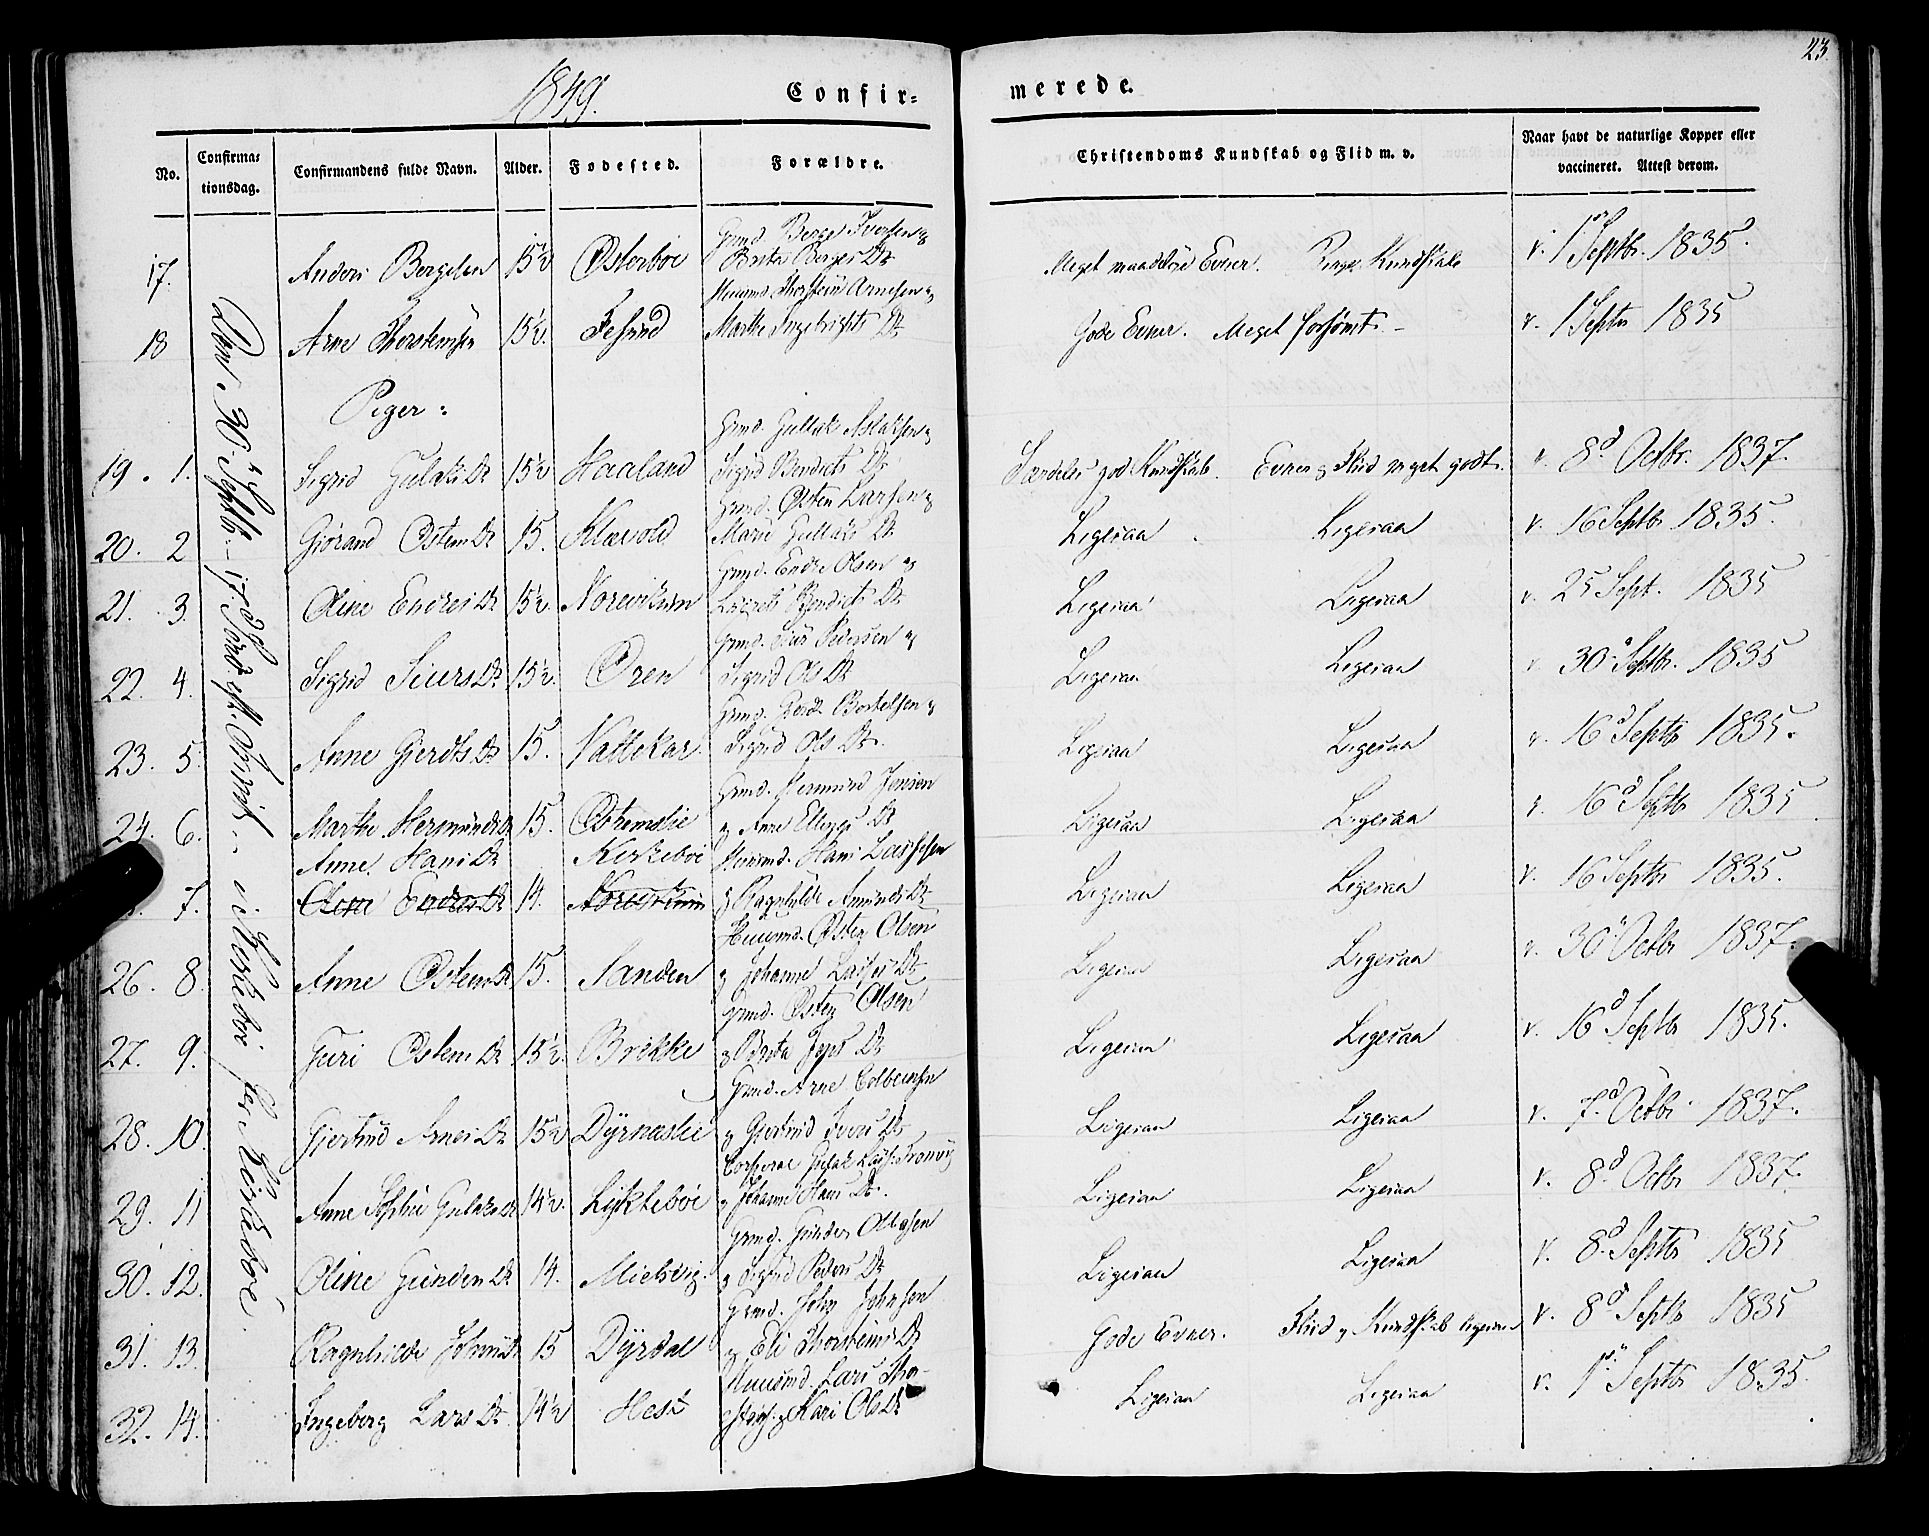 23.
1849.
Confir=
merede.
No.
Confirma=
tionsdag.
Confirmandens fulde Navn.
Alder.
Fødested.
Forældre.
Christendoms Kundskab og Flid m. v.
Naar havt de naturlige Kopper eller
vaccineret. Attest derom.
Gmd. Berge Iversen &
17. Anders Bergesen 15½ Østerbøe Brita Berges Dr Meget maadelige Evner. Ringe Kundskab v. 1 Septbr. 1835.
Huusmd. Thorstein Arnesen &
18 Arne Thorstensen 15½. Fesund Marthe Ingebrigts Dr Gode Evner. Meget forsømt. v. 1 Septbr 1835
Piger:
Gmd. Gullak Aslaksen &
19. 1. Sigrid Gulaks Dr 15½ Haaland Sigrid Bendicts Dr Særdeles god Kundskab. Evner & Flid meget godt. v. 8d Octbr. 1837.
Gmd. Østen Larsen &
20. 2 Gjørand Østens Dr 15. Klævold Marie Gullaks Dr Ligesaa Ligesaa v. 16 Septbr 1835.
Gmd. Endre Olsen &
21. 3. Oline Endres Dr 15½ Noreviken Bendicts Dr Ligesaa Ligesaa v. 25 Sept. 1835
Gmd. Siur Pedersen &
22. 4. Sigrid Siurs Dr 15½. Øren Sigrid Ols Dr Ligesaa Ligesaa v. 30 Septbr. 1835
Gmd. Gerdt Bottelsen &
23. 5. Anne Gjerdts Dr 15. Nattekar Sigrid Ols Dr. Ligesaa Ligesaa v. 16d Septbr 1835.
Gmd. Hermund Jensen
24. 6. Marthe Hermunds Dr 15. Østemdlie & Anne Ellings Dr Ligesaa Ligesaa v. 16d Septbr 1835
Anne Hans Dr Kirkebøe Huusmd. Hans Lassesen
7. Oline Endres Dr 14. Noreviken & Ragnhilde Amunds Dr Ligesaa Ligesaa v. 16 Septbr 1835.
Huusmd. Østen Olsen
26. 8. Anne Østens Dr 15. Sanden & Johanne Lasses Dr Ligesaa Ligesaa v. 30 Octbr 1837.
Gmd. Østen Olsen
27. 9. Guri Østens Dr 15½. Brekke & Brita Jens Dr Ligesaa Ligesaa v. 16d Septbr 1835.
Gmd. Arne Colbeinsen
28. 10. Gjertrud Arnes Dr 15½ Dyrneslie & Gjertrud Ivers Dr Ligesaa Ligesaa v. 7d Octbr 1837.
Corporal Gulak Lars. Tronvig
29. 11 Anne Sophie Gulaks Dr 14½. Lyktebøe & Johanne Hans Dr. Ligesaa Ligesaa v. 8d. Octbr 1837.
Gmd. Gunder Ottesen
30. 12. Oline Gunders Dr 14. Mielsvig. & Sigrid Peders Dr Ligesaa Ligesaa v. 8d. Septbr 1835
Gmd. John Johnsen
31. 13. Ragnhilde Johns Dr 15 Dyrdal & Eli Thorsteins Dr Gode Evner. Flid & Kundskab ligesaa v. 8d Septbr 1835
Huusmd. Lars Tho-
32. 14. Ingeborg Lars Dr 14½ Hest & Kari Ols Dr Ligesaa Ligesaa v. 1 Septbr 1835.
Den 30 Septbr. – 17d Sønd. eft. Trinit. – i Kirkebøe for Kirkebøe.